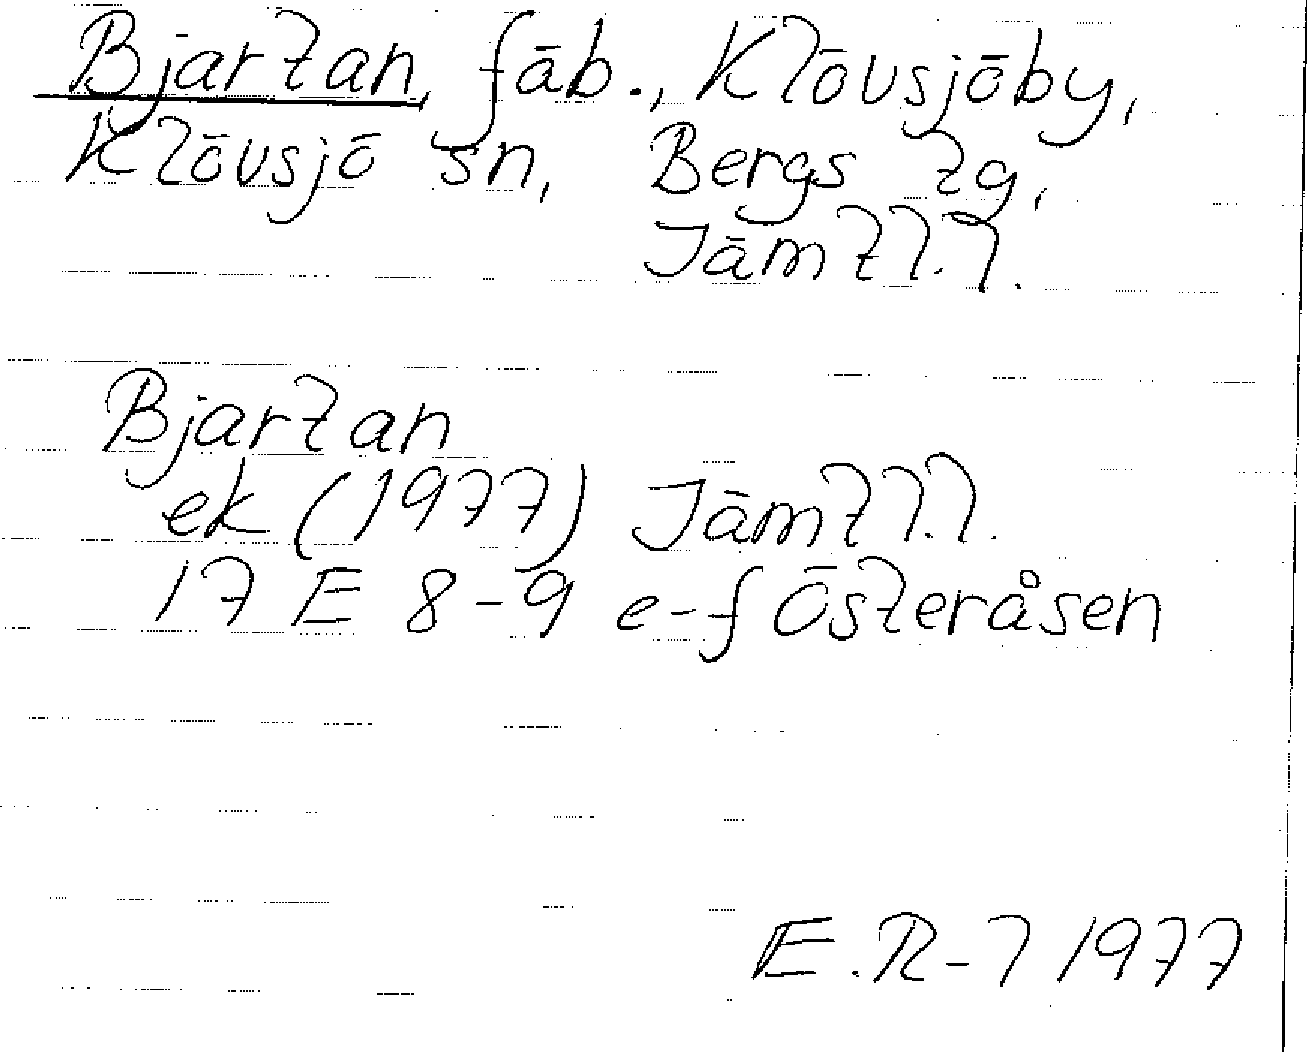 Bjartan, fäb., Klövsjöby,
Klövsjö sn, Bergs tg,
Jämtl.l.
Bjartan
ek (1977) Jämtl.l.
17 E 8-9 e-f Österåsen
E.R-l 1977